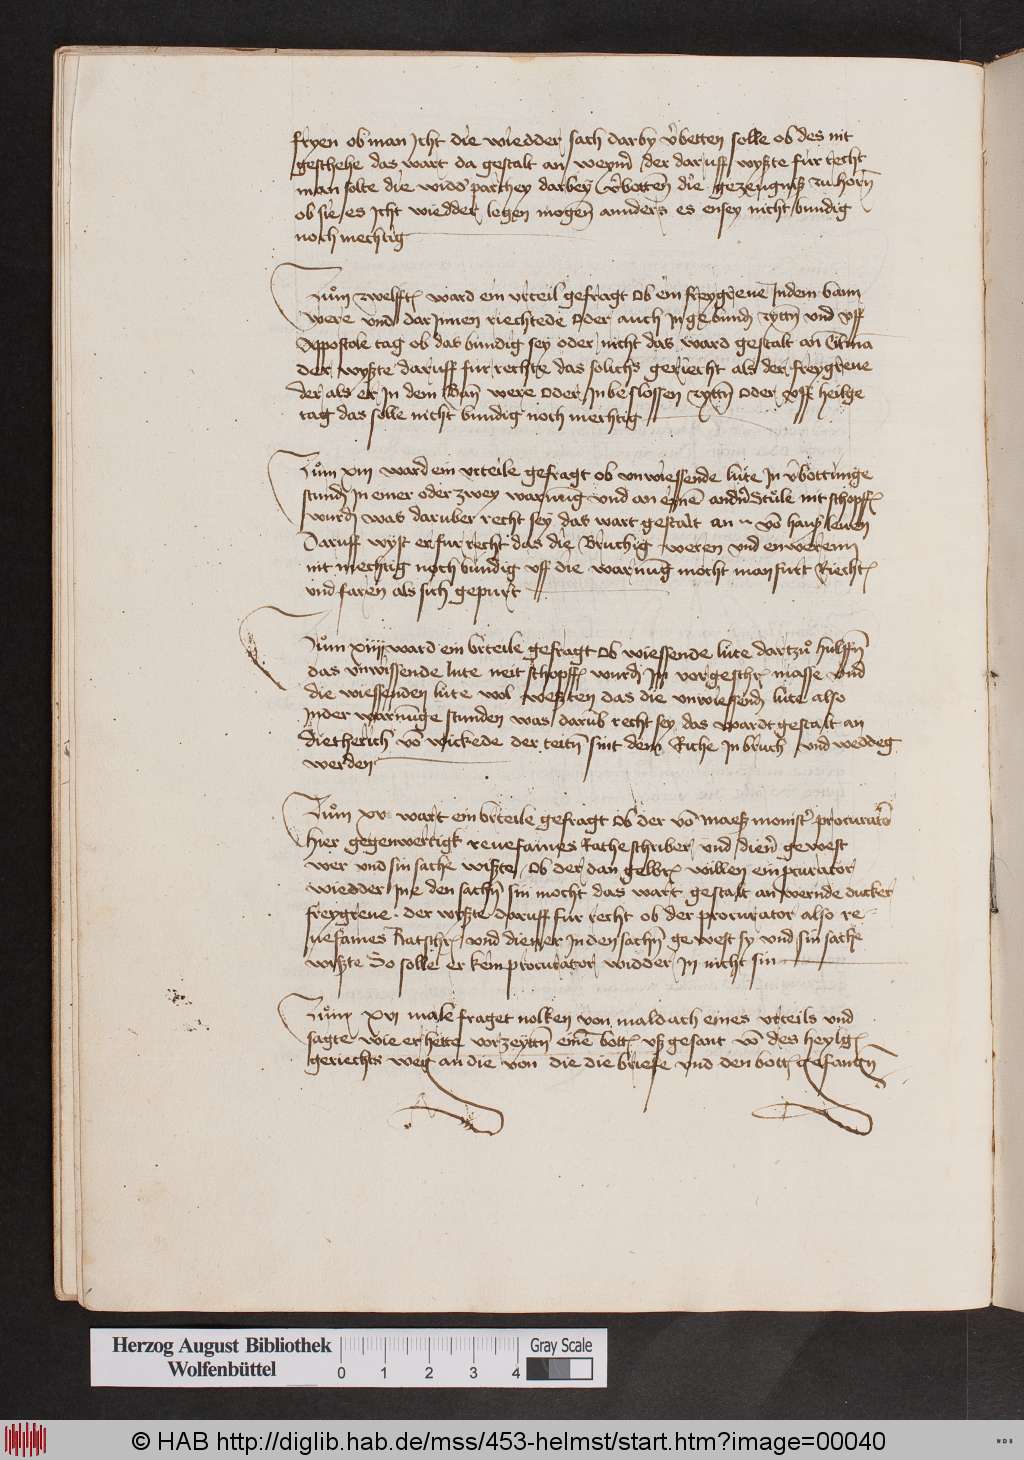 fryen ob man Icht die wiedder sach darby v̄betten solle ob des nit
geschehe das wart da gestalt an der daruff wyszte fur recht
man solte die widd' parthey darbey v̄botten̄ die gezeugnisz zu horn̄
ob sie es Icht wiedder legen mogen̄ annders es ensey nicht bundig
noch mechtig
Zům zwelfften ward ein vrteil gefragt ob ein freygreue Indem bann
were vnd dar Innen riechtede oder auch In gebund̄ zytt̄n vnd vff
Appostole tag ob das bundig sey oder nicht das ward gestalt an
der wyszte daruff fur rechte das solichs geriecht als der freygreue
der als er In dem Ban̄ were oder In beslossen zytt̄n oder vff heilge
tag das solle nicht bundig noch mechtig
Zům xiij ward ein vrteile gefragt ob vnwiessende lute In v̄bottunge
stund̄ In einer oder zwey warnu̅g vnd an eyne̅ and'n̄ Stule nit schopff̄
wurd̄ was daruber recht sey das wart gestalt an n vo̅ hausz leuen
Daruff wyst er fur recht das die Bruchig weren vnd enwerenn
nit mechtig noch bundig vff die warnu̅g mocht man furt Riecht̄
vnd faren als sich gepurt
Zům xiiij ward ein vrteile gefragt ob wiessende lute dartzů hulffn̄
das vnwissende lute neit schopff̄ wurd̄ In vorgeschr̄ masse vnd
die wiessenden lute wol weszten das die vnwiessend̄ lute also
Inder warnu̅ge stunden was darub̄ recht sey das wardt gestalt an
dietherich vo̅ wickede der teit̄n sint dem Riche In bruch vnd weddeg
werden
Zům xv wart ein vrteile gefragt ob der vo̅ maesz monist' procurator
hier gegenwertigk reuesames Rathe schriber vnd dien̄ gewest
wer vnd sin sache wiszte ob der dan gelbt̄ willen ein pcurator
wiedder Ine den sach̄n sin mocht das wart gestalt an wernde ducker
freygreue der wyszte daruff fur recht ob der procurator also re-
uesames Ratschr̄ vnd diener In den sach̄n gewest sy vnd sin sache
wiszte So solle er kein procurator widder In nicht sin
Zům xvj male fraget nolken von maldach eines vrteils vnd
sagte wie er hette vorzeytt̄n eine̅ bott̄ vsz gesant vo̅ des heylḡ
geriechts weg an die von die die briefe vnd den bott̄ gefanḡn
Herzog August Bibliothek
Wolfenbüttel
0 1 2 3 4
Gray Scale
© HAB http://diglib.hab.de/mss/453-helmst/start.htm?image=00040